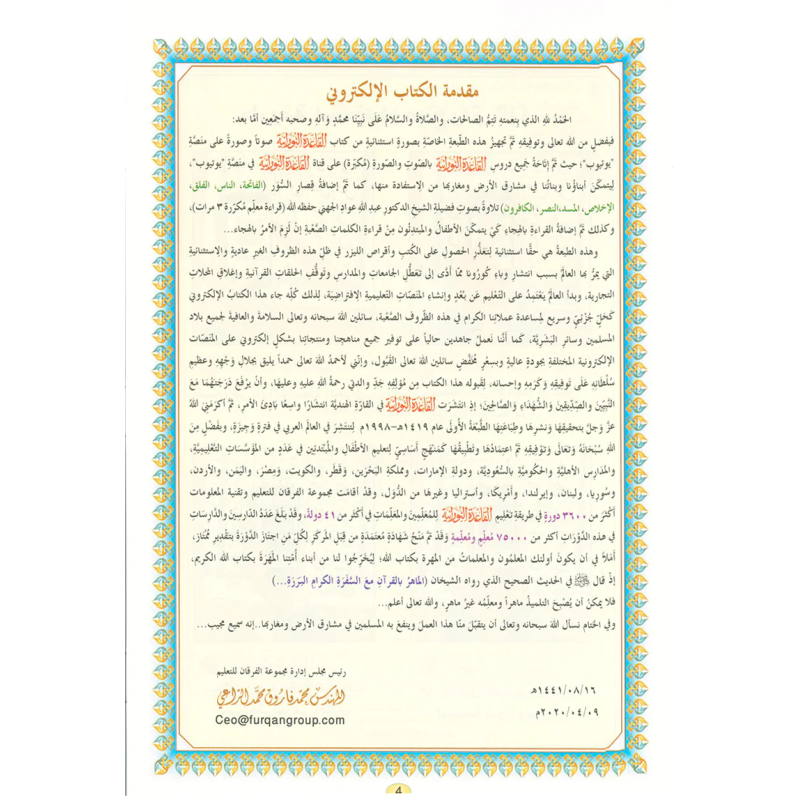 مقدمة الكتاب الإلكتروني
الحَمْدُ للهِ الذي بنعمتِهِ تَتِمُّ الصالحات، والصَّلاةُ والسَّلامُ عَلَى نَبِيِّنَا محمَّدٍ وَآلِهِ وصحبه أجْمَعِين أمَّا بعد:
فبفضلٍ من الله تعالى وتوفيقِهِ تَمَّ تجهيزُ هذه الطَّبعةِ الخاصَّةِ بصورةٍ استثنائيةٍ من كتاب القَاعِدَة النُّورَانِيَّة صوتاً وصورةً على منَصَّةِ
"يوتيوب"؛ حيث تَمَّ إتَاحَةُ جَميع دروسِ القَاعِدَة النُّورَانِيَّة بالصَّوتِ والصُّورةِ (مُكبَّرة) على قناة القَاعِدَة النُّورَانِيَّة في مَنصَّة "يوتيوب"،
لِيَتَمكَّنَ أبناؤُنا وبناتُنا في مشارق الأرض ومغاربها من الاستفادة منها، كما تَمَّ إضافةُ قِصارِ السُّوَرِ (الفاتحة، الناس، الفلق،
الإخلاص، المسد،النصر، الكافرون) تلاوةً بصوتِ فضيلةِ الشيخِ الدكتور عبدِ اللهِ عواد الجهني حفظه الله (قراءةَ معلِّمٍ مُكرَّرة ٣ مرات)،
وكذلك تَمَّ إضافةُ القراءةِ بالهِجاءِ كَيْ يتمكَّنَ الأطفالُ والمبتدِئُون مِن قراءةِ الكلماتِ الصَّعبةِ إنْ لَزِمَ الأمرُ بالهجاء...
وهذه الطبعةُ هي حقًّا استثنائية لِتَعَذُّرِ الحصولِ على الكُتبِ وأقراصِ الليزر في ظلِّ هذه الظروفِ الغيرِ عاديةٍ والاستثنائيةِ
التي يمرُّ بها العالمُ بسبب انتشارِ وباءِ كُورُونا ممَّا أدَّى إلى تَعَطُّلِ الجامعاتِ والمدارسِ وتَوقُّفِ الحلقاتِ القرآنيةِ وإغلاقِ المحلاتِ
التجارية، وبدأ العالمُ يَعْتَمِدُ على التَّعْليم عَن بُعْدٍ وإنشاءِ المنَصَّاتِ التَّعليميةِ الافتراضيَّةِ، لِذلك كُلِّه جاء هذا الكتابُ الإلكتروني
كحَلٍّ جُزْئِيٍّ وسريعٍ لمساعدةِ عملائِنا الكرام في هذه الظُّروفِ الصَّعْبة، سائلين الله سبحانه وتعالى السلامةَ والعافيةَ لجميع بلاد
المسلمين وسائرِ البَشَرِيَّةِ، كَما أنَّنا نَعملُ جاهدين حالياً على توفير جميع مناهجنا ومنتجاتِنا بشكلٍ إلكتروني على المنصّات
الإلكترونية المختلفةِ بجودةٍ عاليةٍ وبسِعْرٍ مُخَفَّضٍ سائلين الله تعالى القَبُول، وإنَّني لأَحمدُ الله تعالى حمداً يليق بجلالِ وَجْهِهِ وعظيمِ
سُلْطَانِهِ عَلَى تَوفِيقِهِ وَكَرَمِهِ وإحسانه، لِقبولِه هذا الكتاب مِن مُؤَلِّفِهِ جَدِّ والدتي رحمةُ اللهِ عليهِ وعليها، وأنْ يرفَعَ دَرَجتَهُمَا مَعَ
النَّبِيِّينَ والصِّدِّيقِينَ وَالشُّهَدَاءِ وَالصَّالِحِينَ؛ إذِ انتَشَرَتِ القَاعِدَة النُّورَانِيَّة في القارَّةِ الهِنديَّةِ انتشَارًا واسِعًا بادِئَ الأمرِ، ثمَّ أكرَمَنِيَ اللهُ
عَزَّ وَجَلَّ بتَحقِيقِهَا وَنَشرِهَا وطِبَاعَتِهَا الطَّبْعَةَ الأُولَى عَامَ ١٤١٩هـ-١٩٩٨م لِتَنتَشِرَ في العالَمِ العَربي في فترةٍ وَجِيزَةٍ، وبفَضْلٍ مِنَ
اللهِ سُبْحَانَهُ وَتَعَالَى وتَوفِيقِهِ تَمَّ اعتِمَادُهَا وتَطبِيقُهَا كَمَنْهَجٍ أساسِيٍّ لِتعليم الأطفَالِ والمُبْتَدِئين في عَدَدٍ من المؤَسَّسَاتِ التَّعْلِيمِيَّةِ،
والمدَارِسِ الأهلِيَّةِ والحُكُومِيَّةِ بالسُّعُودِيَّةِ، ودولةِ الإمَارَاتِ، ومملَكَةِ البَحْرَينِ، وَقَطَر، والكويت، ومِصْرَ، واليَمَن، والأردن،
وسُورِيا، ولبنان، وإيرلندا، وأمْرِيكَا، وأستراليا وغيرِهَا من الدُّوَل، وقدْ أقامَتْ مجموعة الفرقان للتعليم وتقنية المعلومات
أكْثَرَ من ٣٦٠٠ دورةٍ في طريقةِ تَعْلِيمِ القَاعِدَة النُّورَانِيَّة للمُعَلِّمِينَ والمعَلِّمَاتِ في أكْثَرَ من ٤١ دولةً، وقدْ بَلَغَ عَدَدُ الدَّارِسينَ والدَّارِسَاتِ
في هذه الدَّوْرَاتِ أكثر من ٧٥٠٠٠ مُعَلِّمٍ ومُعَلِّمةٍ وَقَدْ تَمَّ مَنْحُ شَهَادَةٍ مُعتَمَدَةٍ من قِبَلِ المرْكَزِ لكُلِّ مَنِ اجتَازَ الدَّوْرَةَ بتَقْدِيرِ مُمْتَازٍ،
أملاً في أن يكونَ أولئك المعلمُون والمعلماتُ من المهرةِ بكتابِ الله؛ لِيُخَرِّجُوا لنا من أبناءِ أُمَّتِنا المَهَرَةَ بكتابِ الله الكريم،
إذْ قال ﷺ في الحديث الصحيح الذي رواه الشيخان (الماهرُ بالقرآنِ معَ السَّفَرَةِ الكرامِ البَرَرَةِ...)
فلا يمكنُ أن يُصْبِحَ التلميذُ ماهراً ومعلِّمُه غيرُ ماهرٍ، والله تعالى أعلم...
وفي الختام نسأل اللهَ سبحانه وتعالى أن يتقبّل منّا هذا العملَ وينفعَ به المسلمين في مشارق الأرض ومغاربها..إنه سميع مجيب...
رئيس مجلس إدارة مجموعة الفرقان للتعليم
١٤٤١/٠٨/١٦هـ
المهندس محمد فاروق محمد الراعي
٢٠٢٠/٠٤/٠٩م
Ceo@furqangroup.com
4